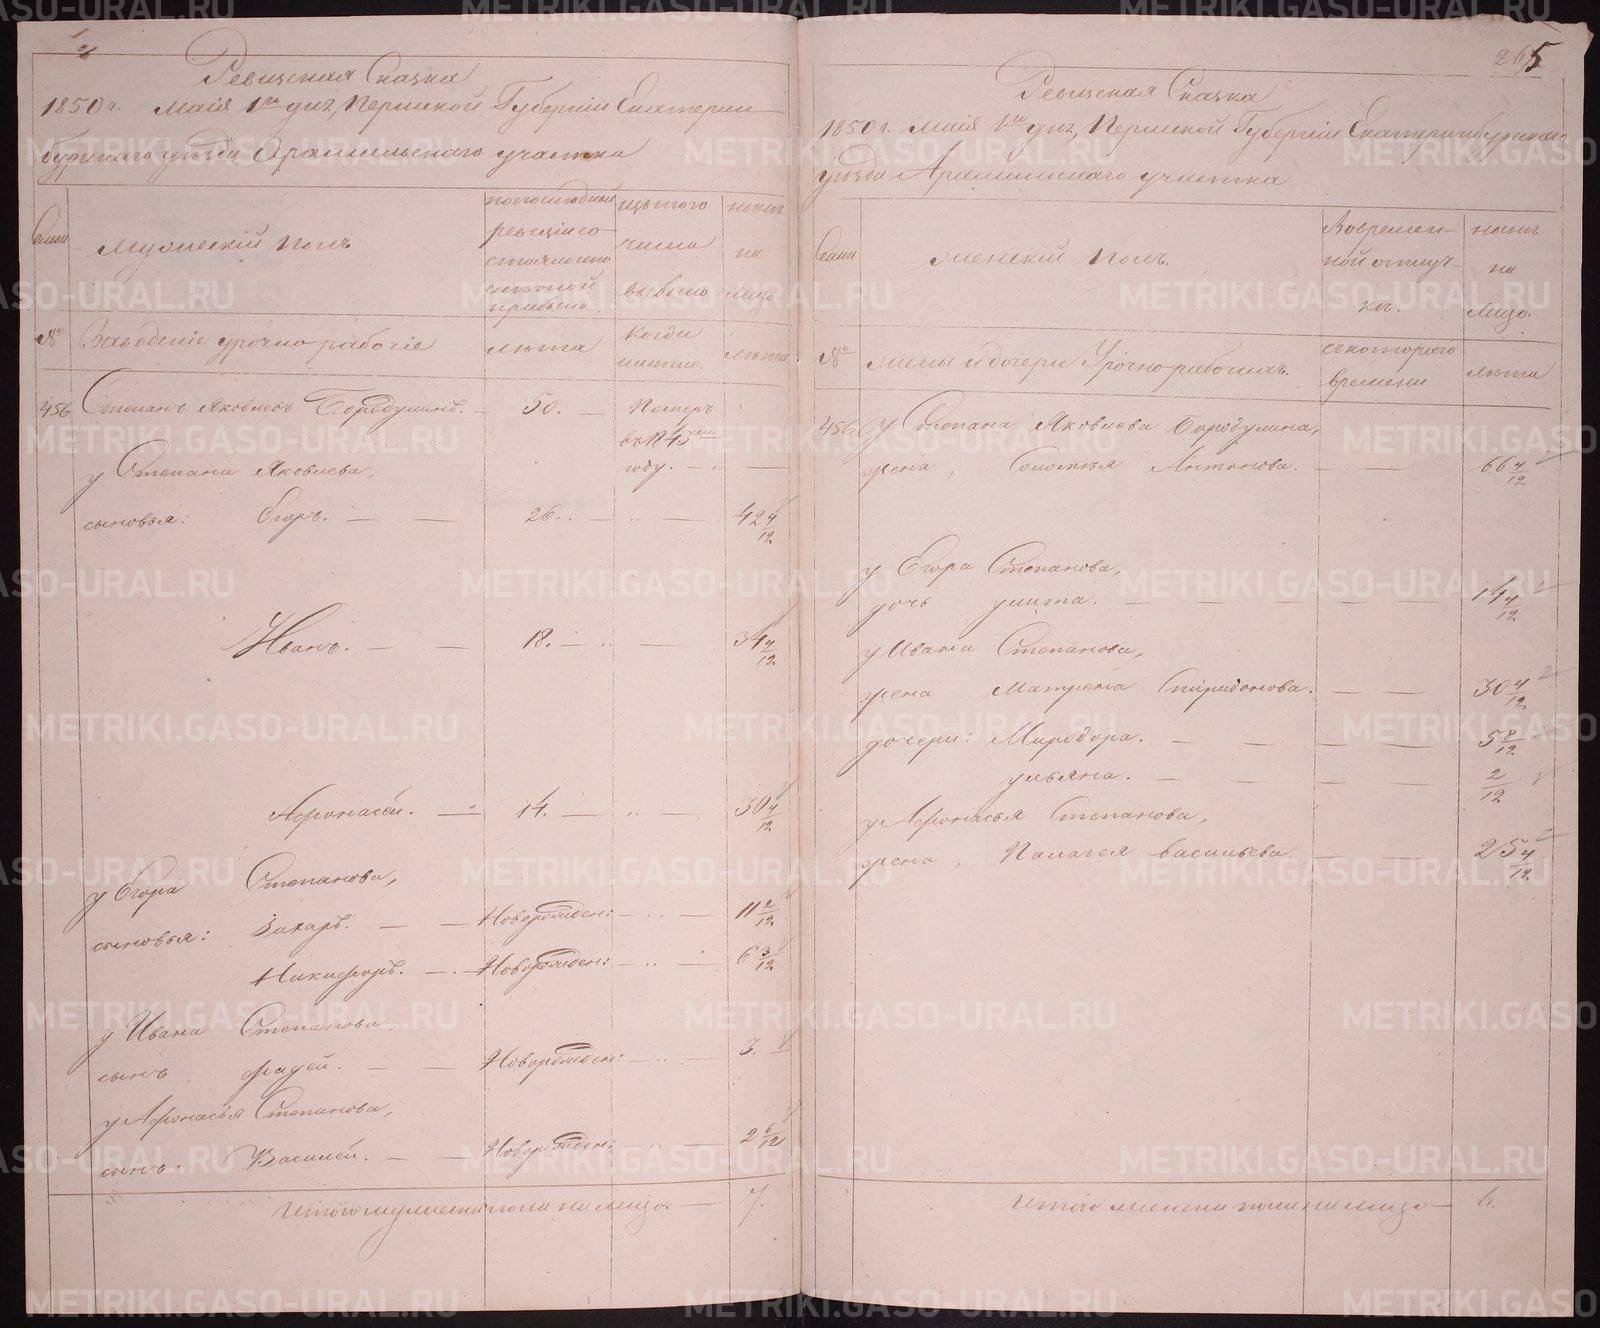 Ревизская Сказка
1850 г. Маія 1го дня, Пермской Губерніи Екатерин
бургскаго уезда Арамильскаго участка
Семьи
Мужескій полъ
по последней
ревизіи со-
стояло и
после той
прибыло
изъ того
числа
выбыло
ныне
на
лицо
№
Заводскіе урочнорабочіе
лета
Когда
именно.
лета.
456
Степанъ Яковлевъ Бородулинъ.
50.
Померъ
въ 1843мъ
году.
у Степана Яковлева,
сыновья: Егоръ.
26.
42 4/12
Иванъ.
18.
34 4/12
Афонасей.
14.
30 4/12
у Егора Степанова,
сыновья: Захаръ.
Новорожден:
11 2/12
Никифоръ.
Новорожден:
6 3/12
у Ивана Степанова,
сынъ Фадей.
Новорожден:
3.
у Афонасья Степанова,
сынъ. Василей.
Новорожден:
2 6/12
Итого мужеска пола на лицо.
7.
265
Ревизская Сказка
1850 г. Маія 1го дня, Пермской Губерніи Екатеринбургскаго
уезда Арамильскаго участка
Семьи
Женскій полъ.
Во времен-
ной отлуч-
ке.
ныне
на
лицо.
№
жены и дочери Урочнорабочихъ.
съ котораго
времени
лета
456
у Степана Яковлева Бородулина,
жена, Антонова.
66 4/12
у Егора Степанова,
дочь улита.
14 4/12
у Ивана Степанова,
жена Матрена Спиридонова.
30 4/12
дочери: Миродора.
5 8/12
ульяна.
2/12
у Афонасья Степанова,
жена, Палагея васильева.
25 4/12
Итого женска пола на лицо
6.
METRIKI.GASO-URAL.RU